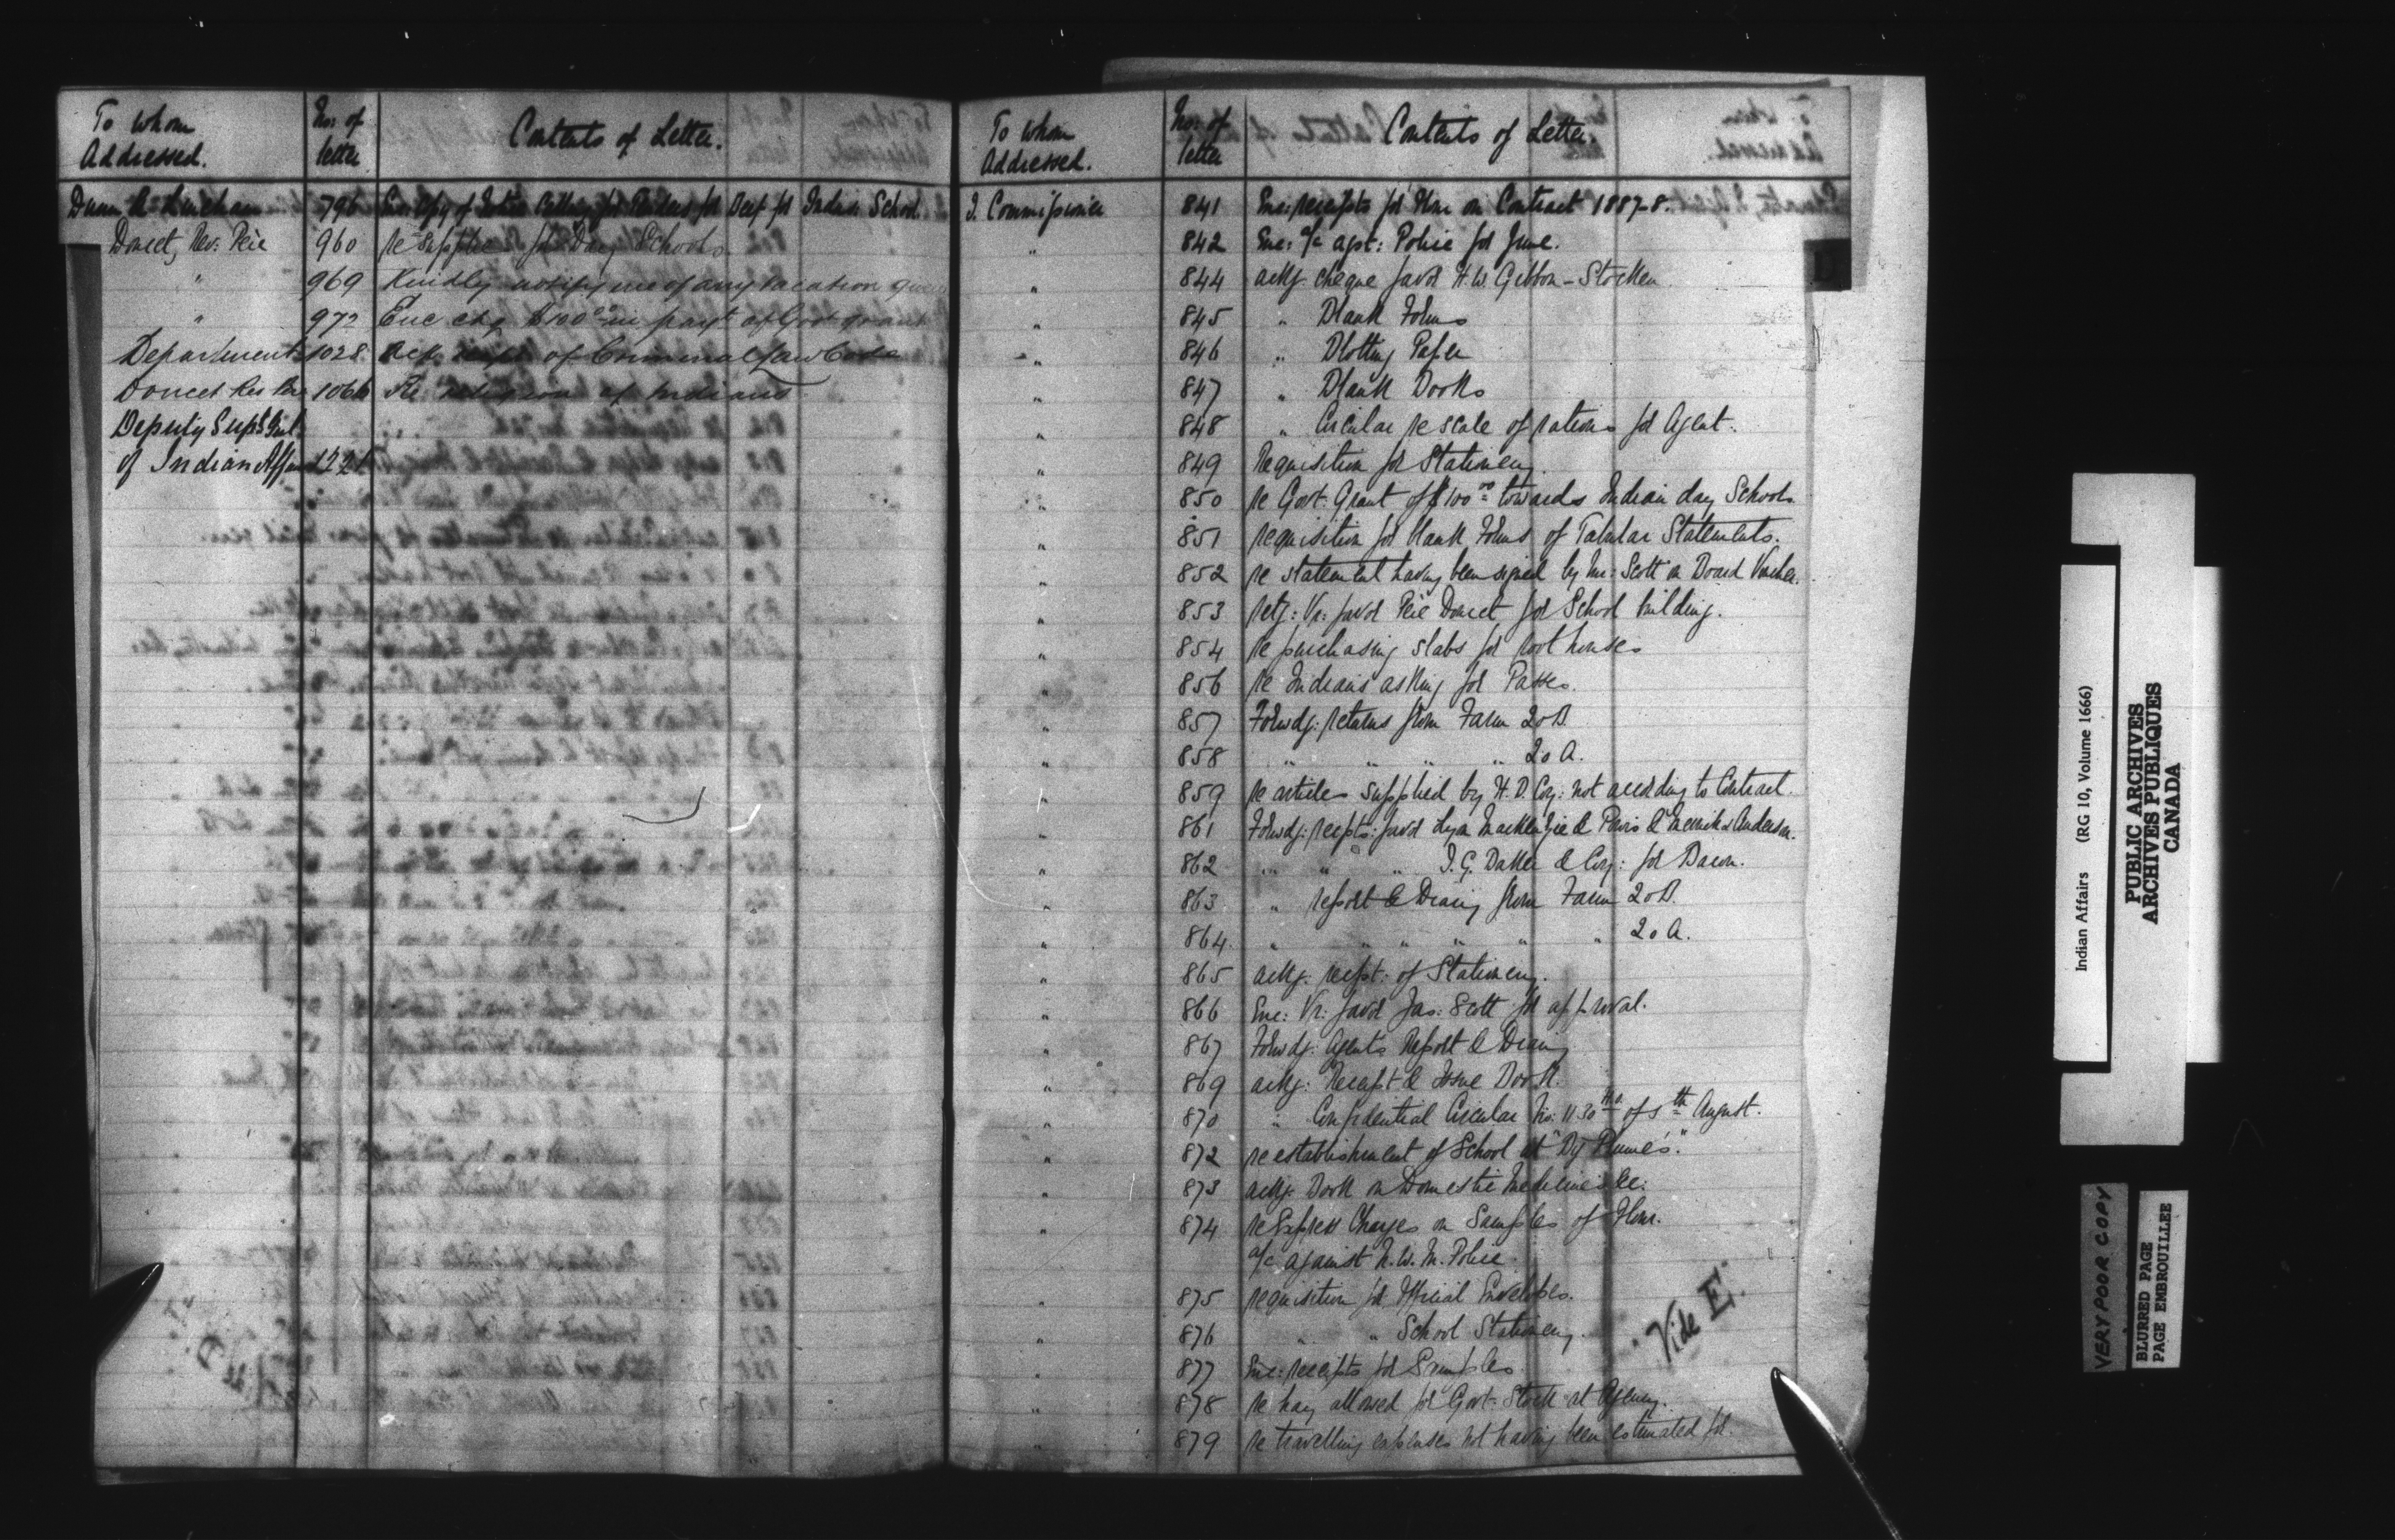 To whom Addressed. No: of letter Contents of Letter.
Dunn & Lineham 796 Enc: Copy of Notice Calling for Tenders for Beef for Indian School.
Doucet, Rev: Père 960 re supplies for Day Schools
" 969 Kindly notify me of any vacation given
" 972 Enc chq $100.00 in payt of Govt grant
Department 1028 Ack receipt of Criminal Law Code
Doucet Rev Père 1066 Re religion of Indians
Deputy Supt Genl.
of Indian Affairs 1221
To whom Addressed. No: of letter Contents of Letter.
I. Commissioner 841 Enc: receipts for Flour on Contract 1887-8.
" 842 Enc: a/c agst: Police for June.
" 844 ackg. cheque favor H.W. Gibbon-Stocken
" 845 " Blank Forms
" 846 " Blotting Paper
" 847 " Blank Books
" 848 " Circular re scale of rations for Agent.
" 849 Requisition for Stationery.
" 850 re Govt: Grant of $100.00 towards Indian day Schools
" 851 requisition for blank Forms of Tabular Statements.
" 852 re statement having been signed by Mr: Scott on Board Voucher.
" 853 retg: Vr: favor Père Doucet for School building.
" 854 re purchasing slabs for root houses
" 856 re Indians asking for Passes.
" 857 Forwdg: returns from Farm 20B
" 858 " " " " 20A.
" 859 re articles supplied by H.B. Coy: not according to Contract.
" 861 Forwdg: recpts: favor Lyon Mackenzie & Powis & Merrick Anderson.
" 862 " " " I.G. Baker & Coy: for Bacon.
" 863 " report & Diary from Farm 20B.
" 864. " " " " " " 20A.
" 865 ackg. recpt: of Stationery.
" 866 Enc: Vr: favor Jas: Scott for approval.
" 867 Forwdg: Agents Report & Diary
" 869 ackg: Receipt & Issue Book.
" 870 " Confidential Circular No: 1130 of 5th August.
" 872 re establishment of School at "Big Plume's."
" 873 ackg. Book on Domestic Medicines &c:
" 874 re Express Charges on Samples of Flour.
a/c against N.W.M. Police
" 875 requisition for Official Envelopes.
" 876 " " School Stationery.
" 877 Enc: receipts for Samples.
" 878 re hay allowed for Govt: Stock at Agency.
" 879 re travelling expenses not having been estimated for.
Vide E.
D
Indian Affairs (RG 10, Volume 1666)
PUBLIC ARCHIVES
ARCHIVES PUBLIQUES
CANADA
VERY POOR COPY
BLURRED PAGE
PAGE EMBROUILLEE